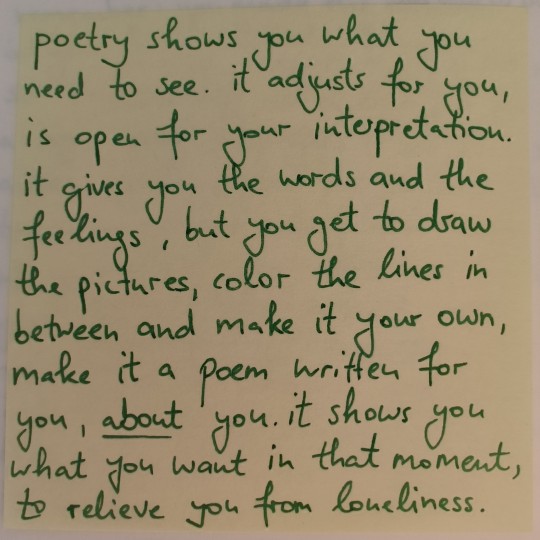 poetry shows you what you
need to see. it adjusts for you,
is open for your interpretation.
it gives you the words and the
feelings, but you get to draw
the pictures, color the lines in
between and make it your own,
make it a poem written for
you, about you. it shows you
what you want in that moment,
to relieve you from loneliness.